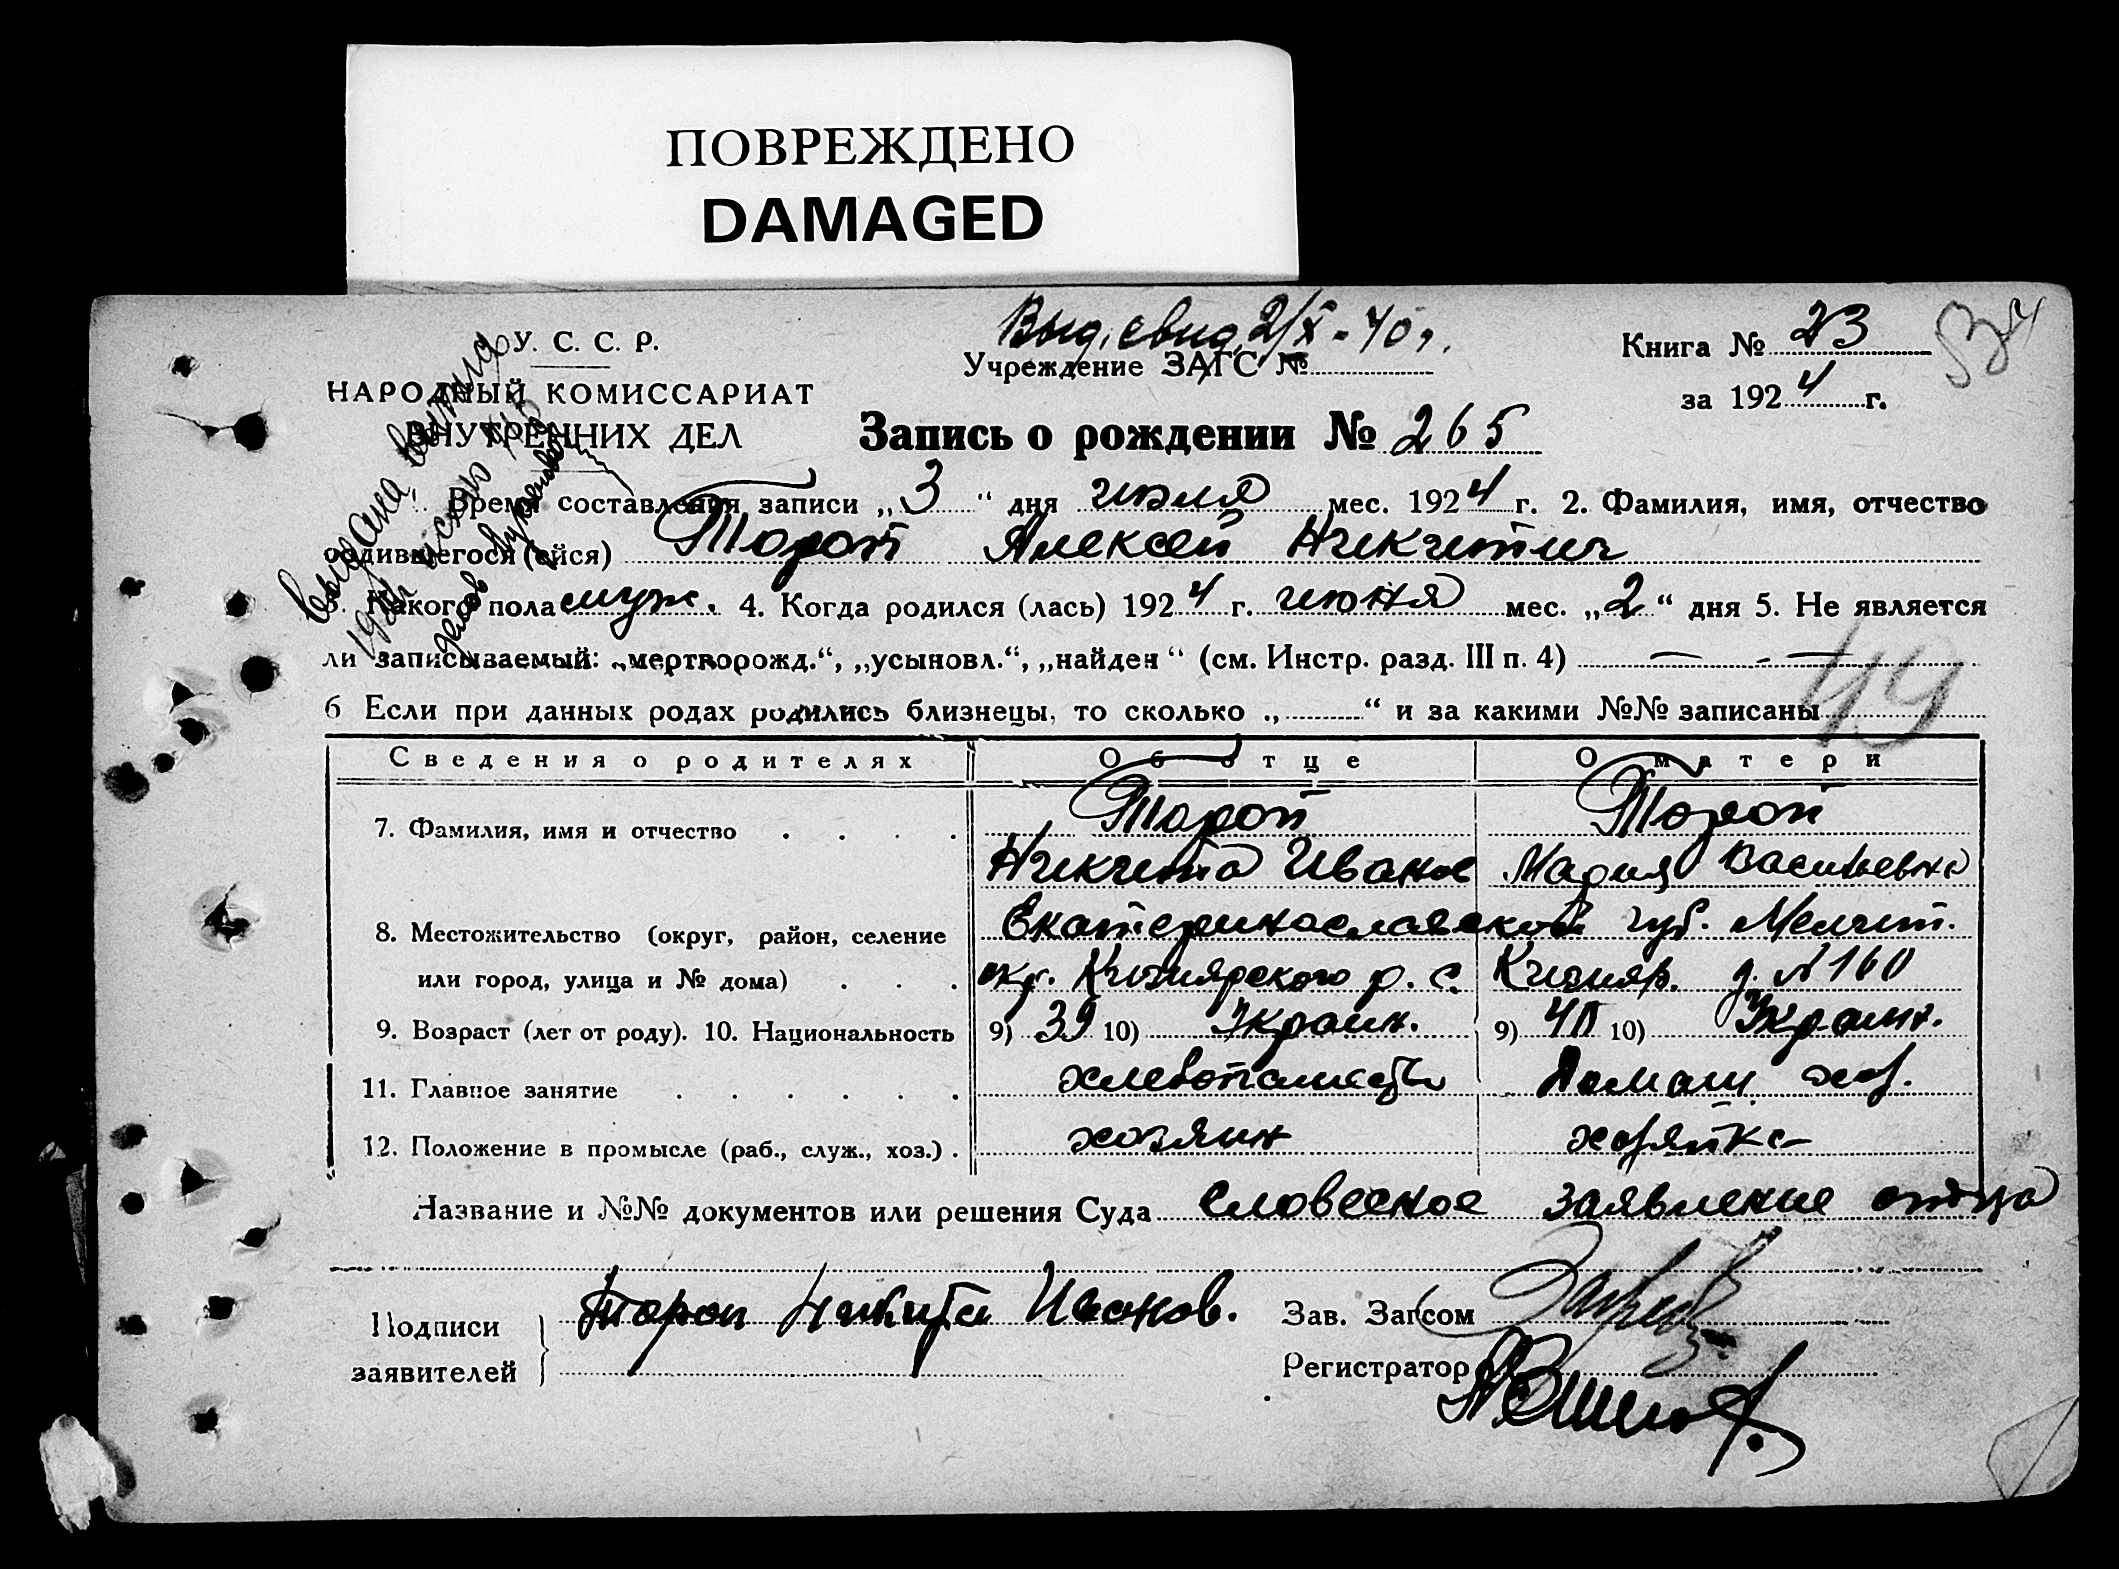 ПОВРЕЖДЕНО
DAMAGED
У. С. С. Р.
НАРОДНЫЙ КОМИССАРИАТ
ВНУТРЕННИХ ДЕЛ
Выд. свид. 2/X - 40 г.
Учреждение ЗАГС №
Книга № 23
за 1924 г.
Запись о рождении № 265
Время составления записи „3“ дня июля мес. 1924 г. 2. Фамилия, имя, отчество
родившегося (ейся) Торот Алексей Никитич
Какого пола муж. 4. Когда родился (лась) 1924 г. июня мес. „2“ дня 5. Не является
ли записываемый: „мертворожд.“, „усыновл.“, „найден“ (см. Инстр. разд. III п. 4) — - —
6 Если при данных родах родились близнецы, то сколько „ “ и за какими №№ записаны
Сведения о родителях Об отце О матери
7. Фамилия, имя и отчество Тороп Тороп
Никита Иванов Мария Васильевна
8. Местожительство (округ, район, селение Екатеринославской губ. Мелит.
или город, улица и № дома) окр. Кизиярского р. с. Кизияр. д. № 160
9. Возраст (лет от роду). 10. Национальность 9) 39 10) Украин. 9) 40 10) Украин.
11. Главное занятие хлебопашество Домаш. хоз.
12. Положение в промысле (раб., служ., хоз.) хозяин хозяйка
Название и №№ документов или решения Суда словесное заявление отца
Подписи заявителей Тороп Никита Иванов.
Зав. Загсом
Регистратор